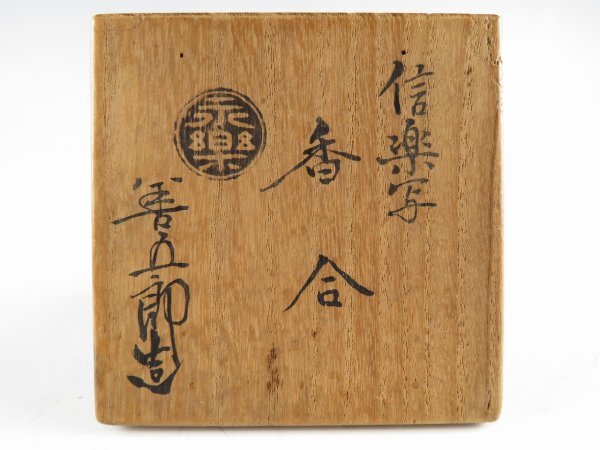 信楽写
香合
永樂
善五郎造